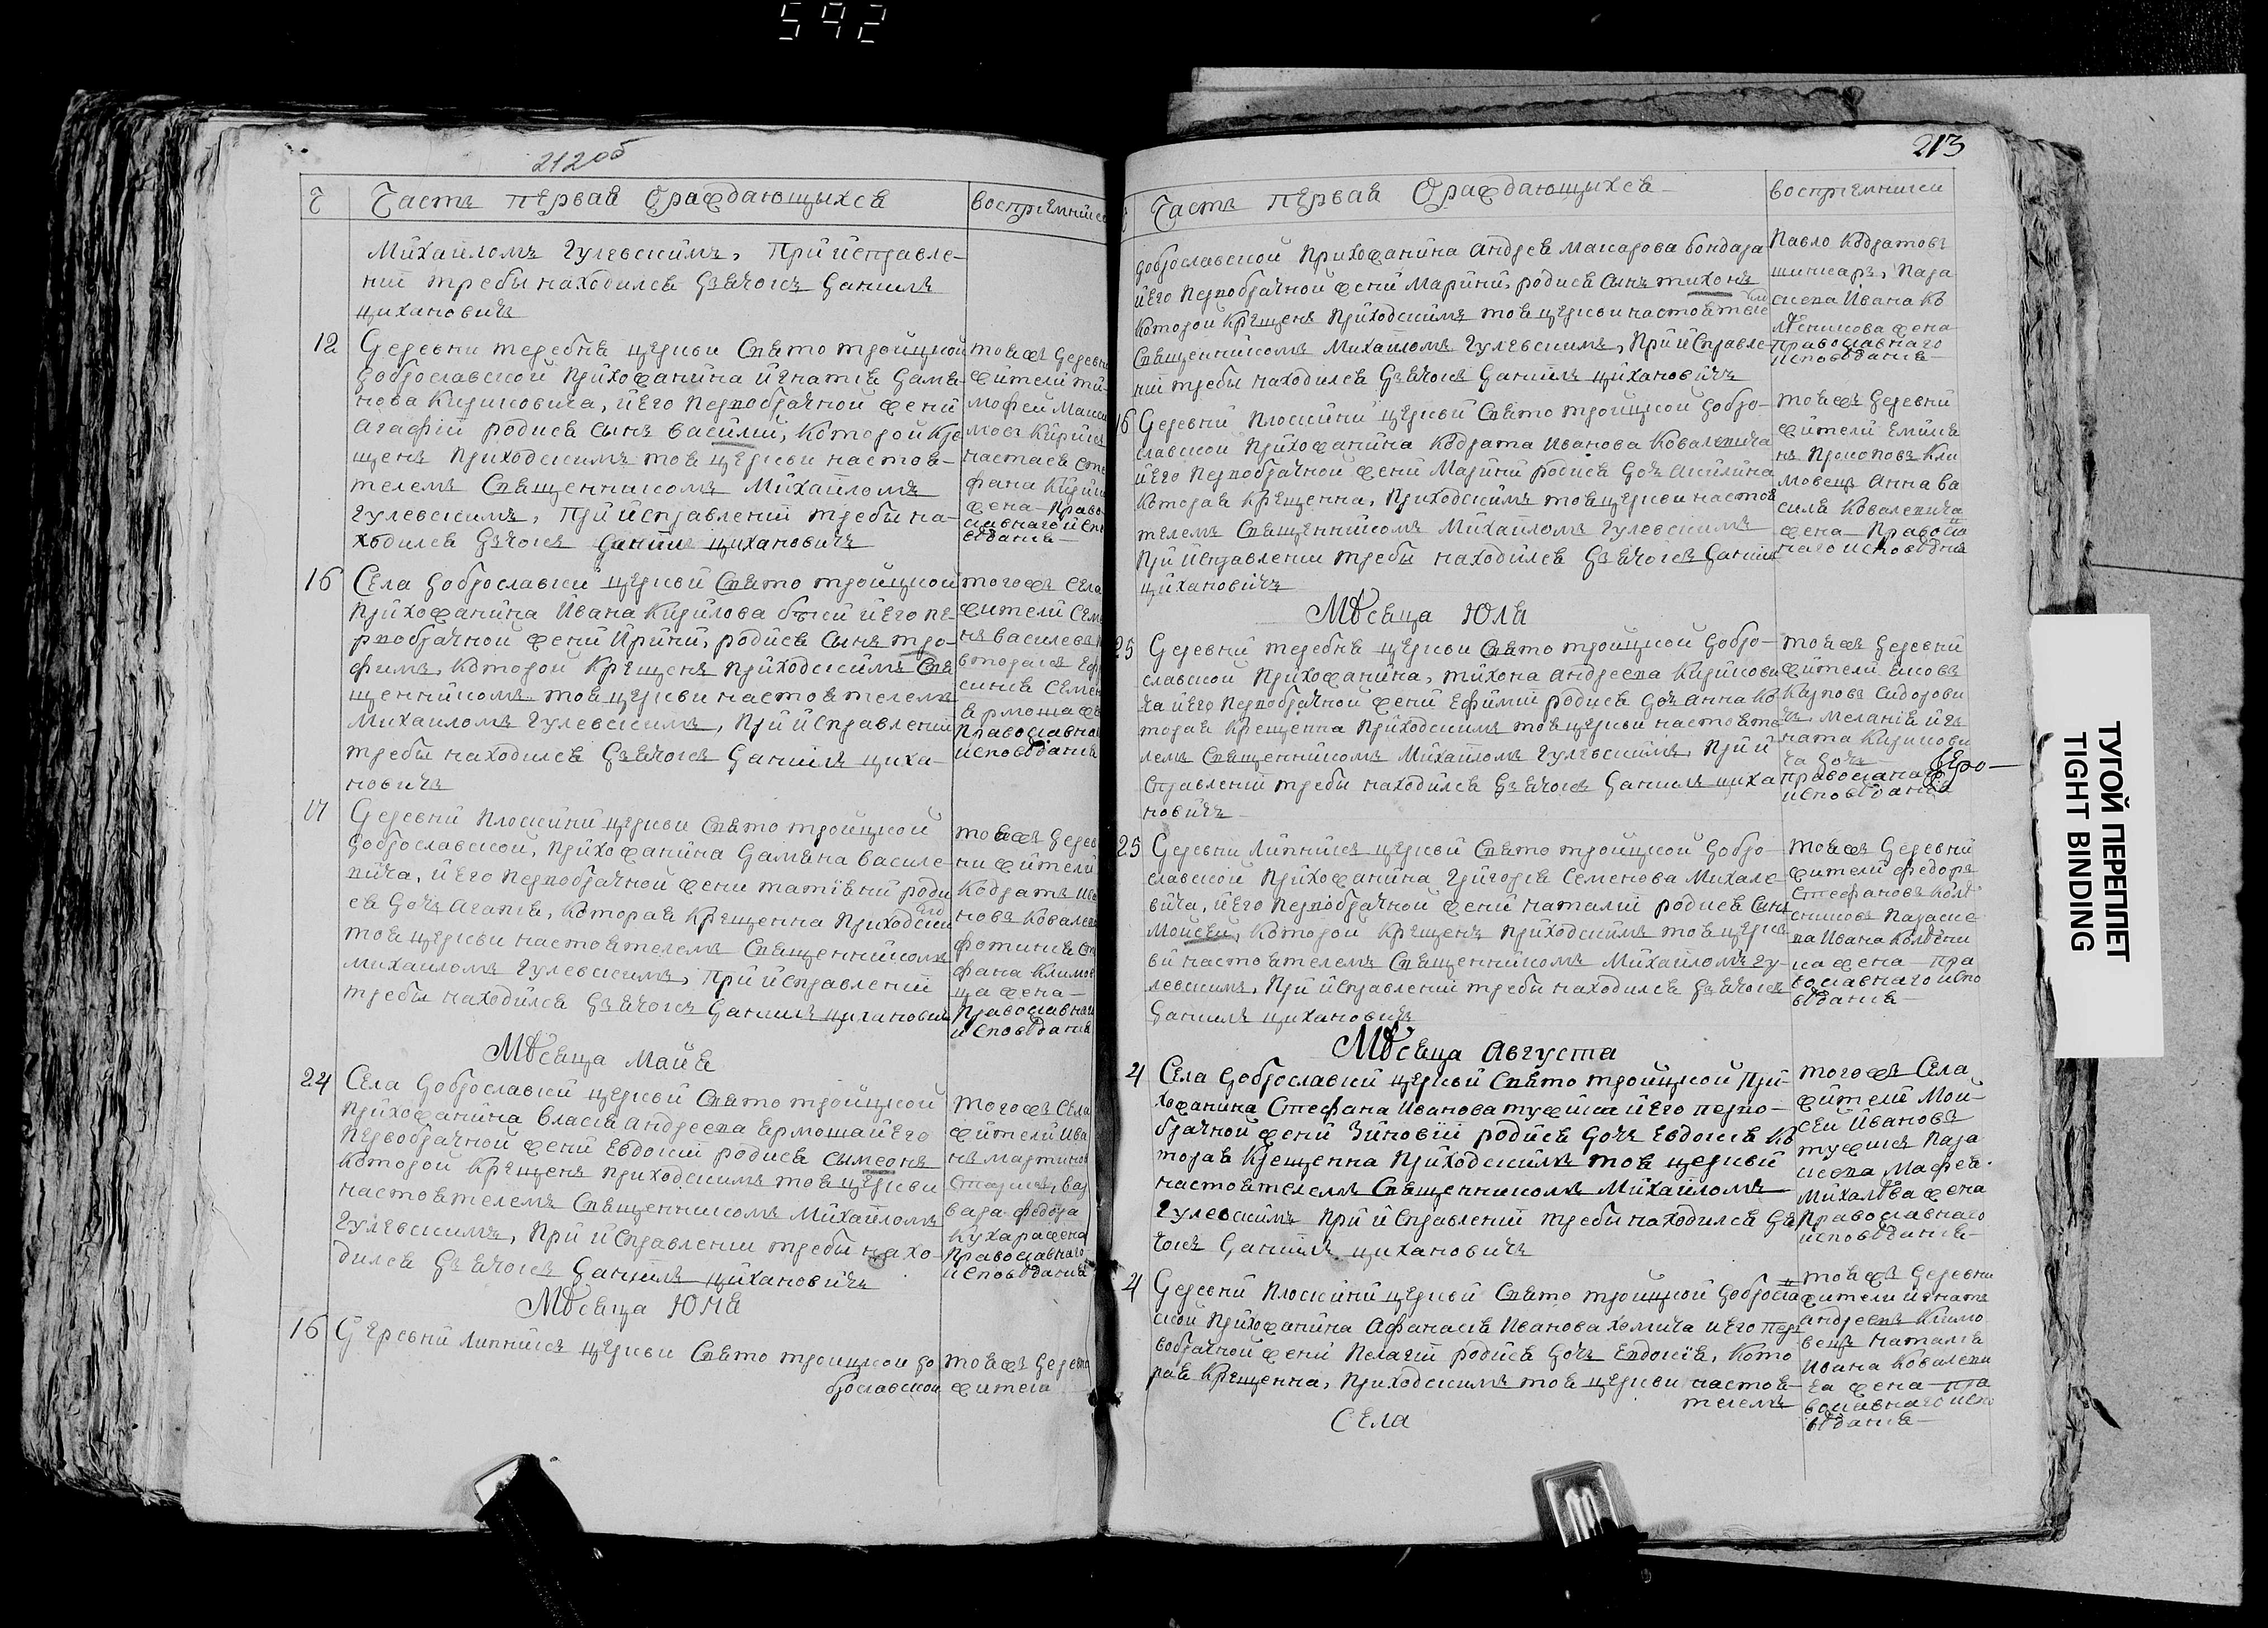 592
212 об
Ч Часть первая Ораждающыхся восприемники
Михаиломъ Гулевскимъ, При исправле-
нии требы находился Дзячокъ Даниилъ
Цихановичъ
12 Деревни теребня церкви Свято тройцкой
Доброславской прихожанина Игнатія Дамя-
нова Кириковича, и Его первобрачной жени
Агафии родися Сынъ Василий, которой Кре
щенъ приходскимъ тоя церкви настоя-
телемъ Священникомъ Михаиломъ
Гулевскимъ, При исправлении требы на-
ходился Дзячокъ Даниилъ Цихановичъ
тояжъ Деревни
жители ти-
мофей
мовъ
настася
фана
жена Право
славнаго
16 Села Доброславки церкви Свято тройцкой
прихожанина Ивана Кирилова и Его пе-
рвобрачной жени Ирини, родися Сынъ тро-
фимъ, которой Крещенъ приходскимъ Свя
щенникомъ тоя церкви настоятелемъ
Михаиломъ Гулевскимъ, При исправлении
требы находился Дзячокъ Даниилъ Циха-
новичъ
тогожъ села
жители
нъ василевъ
ярмоша
Православна
исповѣдания
17 Деревни Плоскини церкви Свято тройцкой
Доброславской, прихожанина Дамяна Василе-
вича, и Его первобрачной жени татіяни роди
ся Дочъ Агапія, которая Крещенна приходски
тоя церкви настоятелемъ Священникомъ
Михаиломъ Гулевскимъ, При исправлении
требы находился Дзячокъ Даниилъ Циханович
тояжъ Дерев
ни жители
Кодратъ Ива
новъ Ковалев
фотиния Сте
фана Климов
ца жена
Православнаго
исповѣдания
Мѣсяца Майя
24 Села Доброславки церкви Свято тройцкой
Прихожанина Власія Андреева Ярмоша и Его
Первобрачной жени Евдокии родися Сымеонъ
которой Крещенъ приходскимъ тоя церкви
настоятелемъ Священникомъ Михаиломъ
Гулевскимъ, При исправлении требы нахо-
дился Дзячокъ Даниилъ Цихановичъ
тогожъ Села
жители Ива
нъ мартинов
вара федора
Кухара жена
Православнаго
исповѣдания
Мѣсяца Юня
16 Деревни Липники церкви Свято троицкой до
брославской
тояжъ Деревни
жители
213
Часть первая Ораждающыхся восприемники
доброславской Прихожанина Андрея Макарова Бондара
и Его первобрачной жени Марини, родися Сынъ тихонъ
которой Крещенъ приходскимъ тоя церкви настоятеле
Священникомъ Михаиломъ Гулевскимъ, При исправле-
нии требы находился Дзячокъ Даниилъ Цихановичъ
Павло Кодратовъ
шинкаръ, Пара
скева Ивана Ко
лѣсникова жена
православнаго
исповѣдания
16 Деревни Плоскини церкви Свято тройцкой Добро-
славской Прихожанина Кодрата Иванова Ковалевича
и Его первобрачной жени Марини родися Дочъ Акилина
которая Крещенна, приходскимъ тоя церкви настоя
телемъ Священникомъ Михаиломъ Гулевскимъ
При исправлении требы находился Дзячокъ Даниил
Цихановичъ
тояжъ Деревни
жители Емилія
нъ Прокоповъ Кли
мовецъ Анна Ва
силя Ковалевича
жена Правосла
внаго исповѣдния
Мѣсяца Юля
25 Деревни теребня церкви Свято тройцкой Добро-
славской Прихожанина, тихона Андреева Кирикови
ча и Его первобрачной жени Ефимии родися Дочъ Анна ко
торая Крещенна приходскимъ тоя церкви настояте
лемъ Священникомъ Михаиломъ Гулевскимъ, При и
справлении требы находился Дзячокъ Даниилъ Циха
новичъ
тояжъ Деревни
жители яковъ
Карповъ Сидорови
чъ меланія иг
ната Кирикови
ча Дочъ
православнаго
исповѣдания
25 Деревни Липники церкви Свято тройцкой Добро-
славской Прихожанина Григорія Семенова Михале
вича, и Его первобрачной жени наталии родися Сынъ
Мойсей, которой Крещенъ приходскимъ тоя церк
ви настоятелемъ Священникомъ Михаиломъ Гу-
левскимъ, При исправлении требы находился Дзячокъ
Даниилъ Цихановичъ
тояжъ Деревни
жители федоръ
Стефановъ Колѣ
сниковъ Параске
ва Ивана Колѣсни
ка жена пра
вославнаго испо
вѣдания
Мѣсяца Августа
4 Села Доброславки церкви Свято тройцкой При-
хожанина Стефана Иванова тужика и Его перво-
брачной жени Зиновии родися Дочъ Евдокія ко
торая Крещенна приходскимъ тоя церкви
настоятелемъ Священникомъ Михаиломъ
Гулевскимъ При исправлении требы находился Дзя
чокъ Даниилъ Цихановичъ
тогожъ Села
жители Мой-
сей Ивановъ
тужикъ Пара
скева Мафея
Михалѣва жена
Православнаго
исповѣдания
4 Деревни Плоскини церкви Свято тройцкой Доброслав
ской Прихожанина Афанасія Иванова Хомича и Его пер
вобрачной жени Пелагии родися Дочъ Евдокія, кото
рая Крещенна, приходскимъ тоя церкви настоя-
телемъ
тояжъ Деревни
жители игнатъ
Андреевъ Климо
вецъ наталія
Ивана Ковалеви
ча жена пра
вославнаго испо
вѣдания
Села
ТУГОЙ ПЕРЕПЛЕТ
TIGHT BINDING